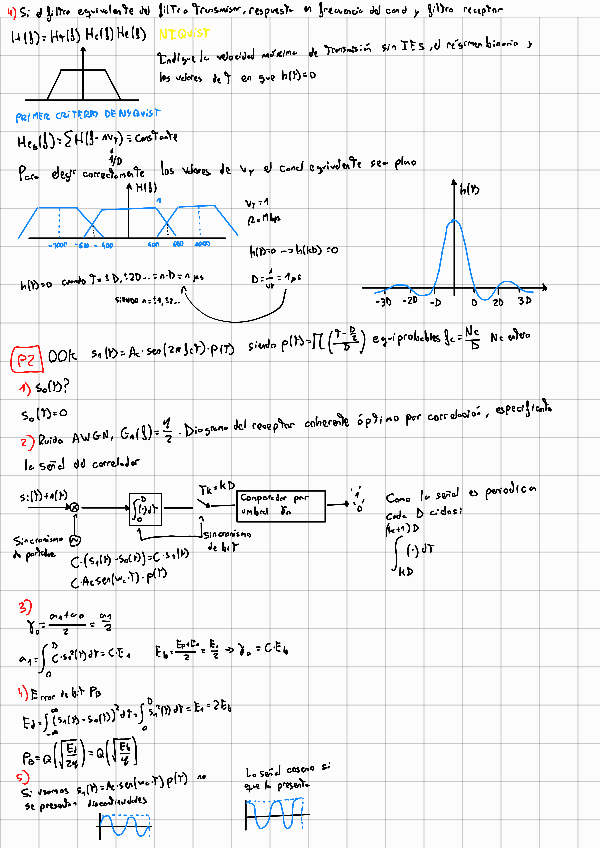 4) Si el filtro equivalente del filtro transmisor, respuesta en frecuencia del canal y filtro receptor
H(f) = HT(f) Hc(f) He(f) NYQUIST
Indique la velocidad máxima de transmisión sin IES, el régimen binario y
los valores de t en que h(t)=0
PRIMER CRITERIO DE NYQUIST
Heq(f) = ∑ H(f - nVT) = constante
1/D
Para elegir correctamente los valores de VT el canal equivalente sea plano
H(f)
1
-1000 -600 -400 400 600 1000
VT = 1
R = 1Mbps
h(t)=0 → h(kD) = 0
h(t)=0 cuando t = ±D, ±2D... = n·D = n μs
siendo n = ±1, ±2...
D = 1/VT = 1 μs
h(t)
-3D -2D -D 0 D 2D 3D
P2 OOK s1(t) = Ac·sen(2π fc t)·p(t) siendo p(t) = ∏((t - D/2)/D) equiprobables fc = Nc/D Nc entero
1) s0(t)?
s0(t) = 0
2) Ruido AWGN, Gn(f) = η/2. Diagrama del receptor coherente óptimo por correlación, especificando
la señal del correlador
si(t)+n(t)
∫0^D (·)dt
Tk = kD
Comparador por
umbral γo
'1'
'0'
Sincronismo
de portadora
Sincronismo
de bit
C·(s1(t) - s0(t)) = C·s1(t)
C·Ac sen(wc·t)·p(t)
Como la señal es periodica
cada D ciclos:
(k+1)D
∫ (·) dt
kD
3)
γo = (a1+a0)/2 = a1/2
a1 = ∫0^D C·s1²(t) dt = C·E1 Eb = (E1+E0)/2 = E1/2 ⇒ γo = C·Eb
4) Error de bit PB
Ed = ∫-∞^∞ (s1(t) - s0(t))² dt = ∫0^D s1²(t) dt = E1 = 2Eb
PB = Q(√(Ed/2η)) = Q(√(Eb/η))
5)
Si usamos s1(t) = Ac·sen(wc·t) p(t) no
se presentan discontinuidades
La señal coseno si
que lo presenta